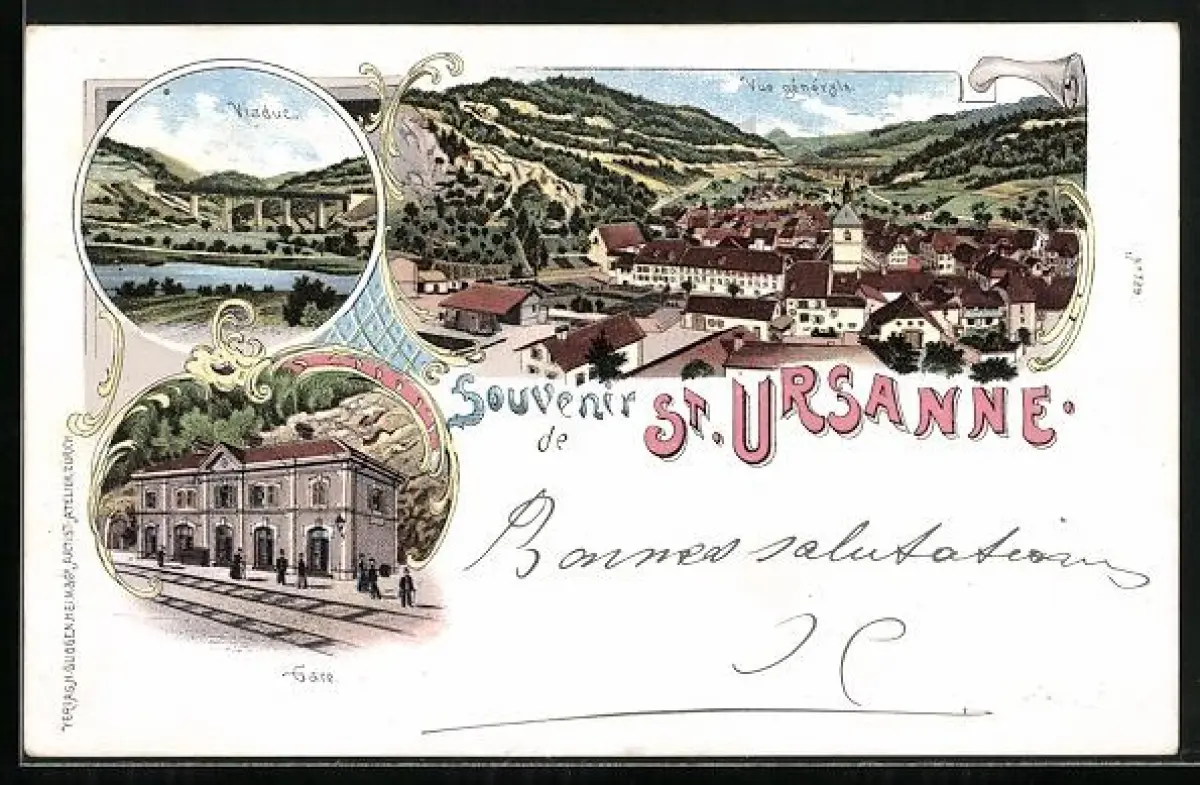 Viaduc.
Vue générale.
Souvenir
de
ST. URSANNE.
Bonnes salutations
JC
Gare.
VERLAG H. GUGGENHEIM & Co., ARTIST. ATELIER, ZÜRICH